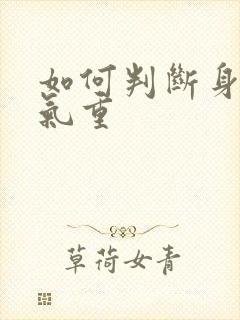 如何判斷身
氣重
草荷女青